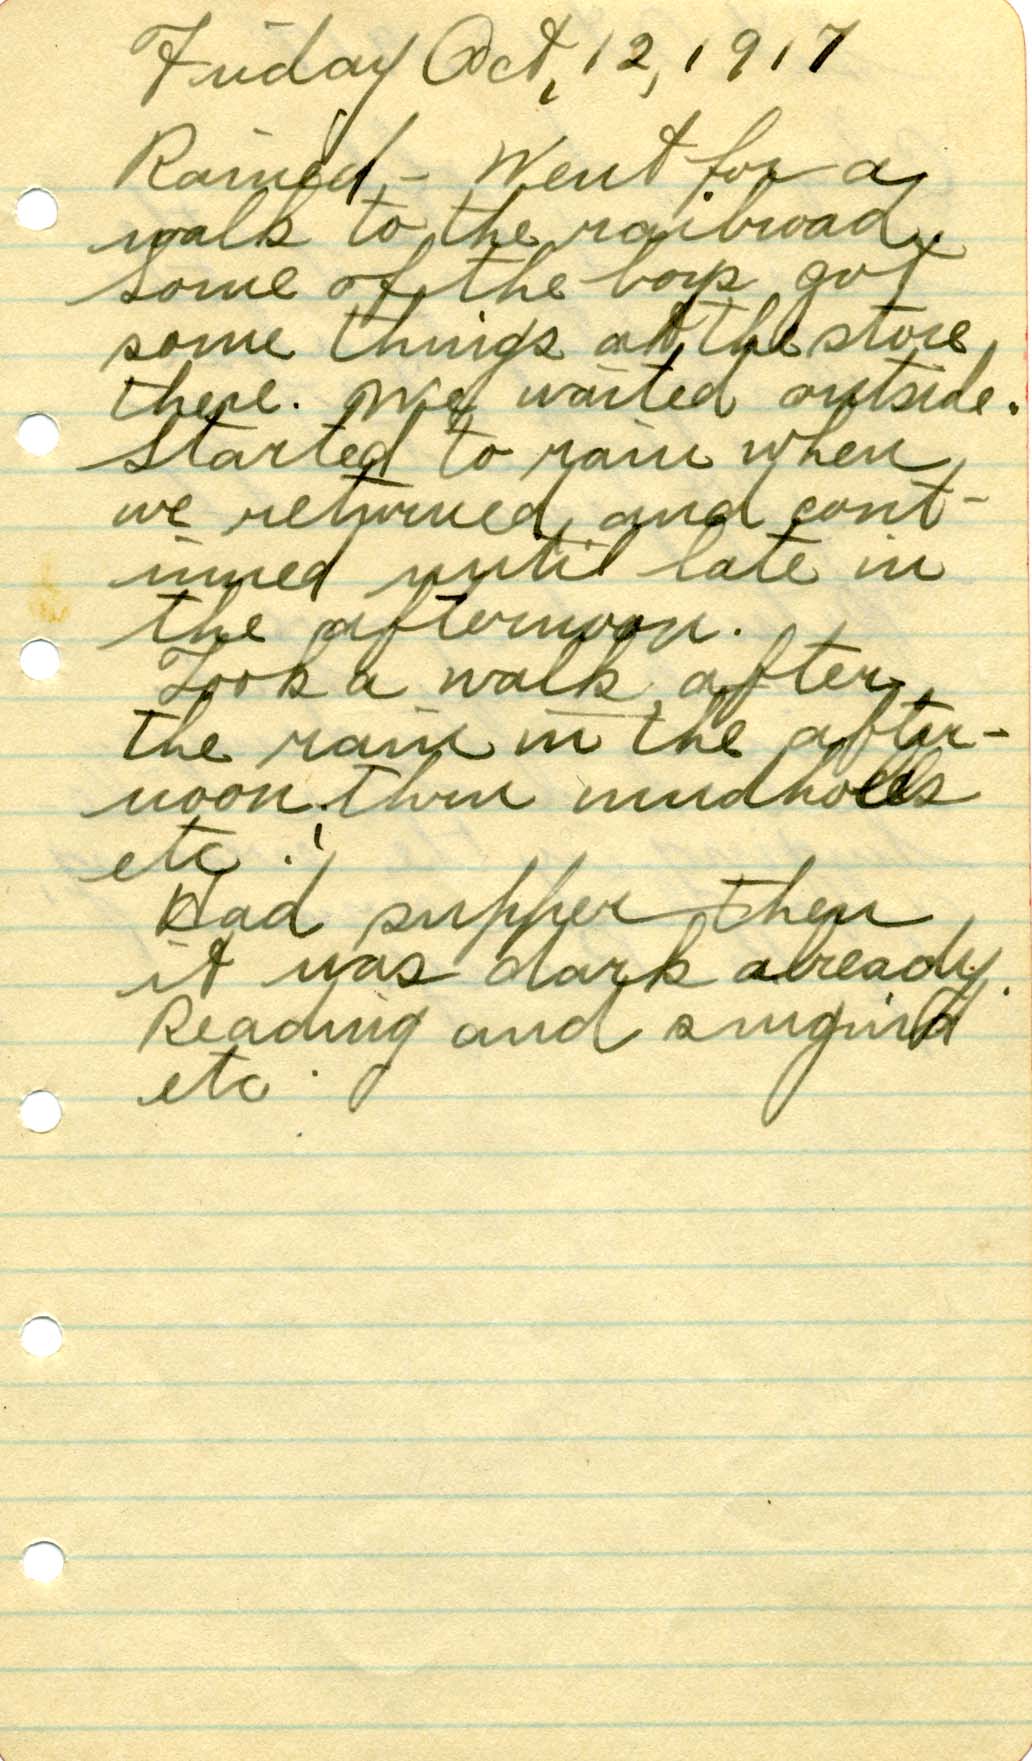 Friday Oct, 12, 1917
Rained, - Went for a
walk to the railroad.
Some of the boys got
some things at the store
there. We waited outside.
Started to rain when
we returned and cont-
inued until late in
the afternoon.
Took a walk after
the rain in the after-
noon thru mudholes
etc.!
Had supper then
it was dark already.
Reading and singing
etc.